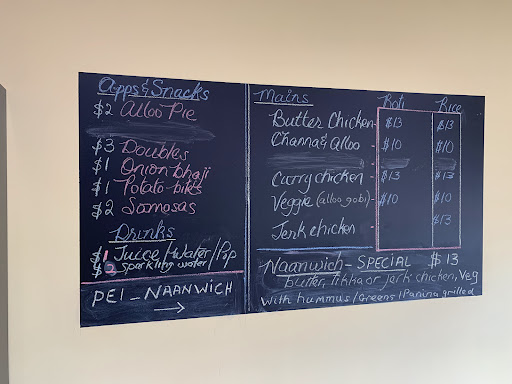 Apps & Snacks
$2 Alloo Pie
$3 Doubles
$1 Onion bhaji
$1 Potato-bites
$2 Somosas
Drinks
$1 Juice/Water/Pop
$2 sparkling water
PEI - NAANWICH
→
Mains Roti Rice
Butter Chicken - $13 $13
Channa & alloo $10 $10
Curry chicken - $13 $13
Veggie (alloo gobi) - $10 $10
Jerk chicken - $13
Naanwich - SPECIAL $13
butter, tikka or jerk chicken, Veg
with hummus/Greens/Panina grilled